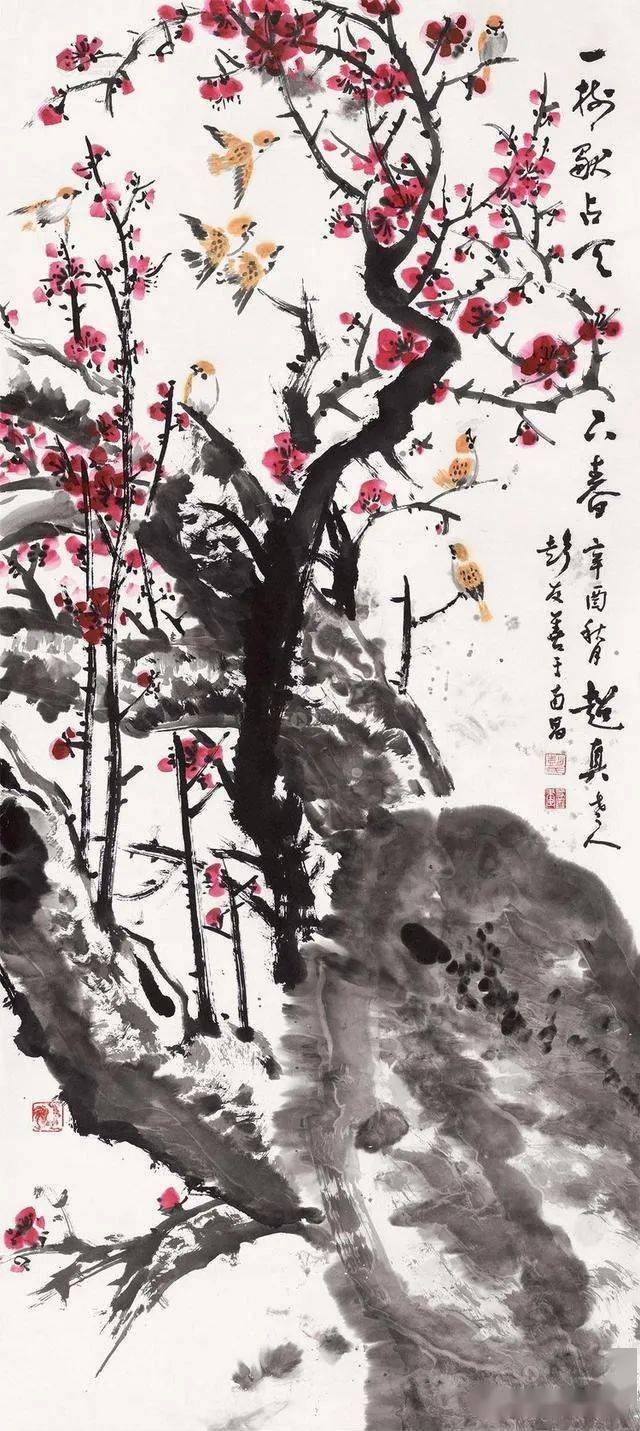 一树占天下春辛酉秋月超真老人
彭友善于南昌